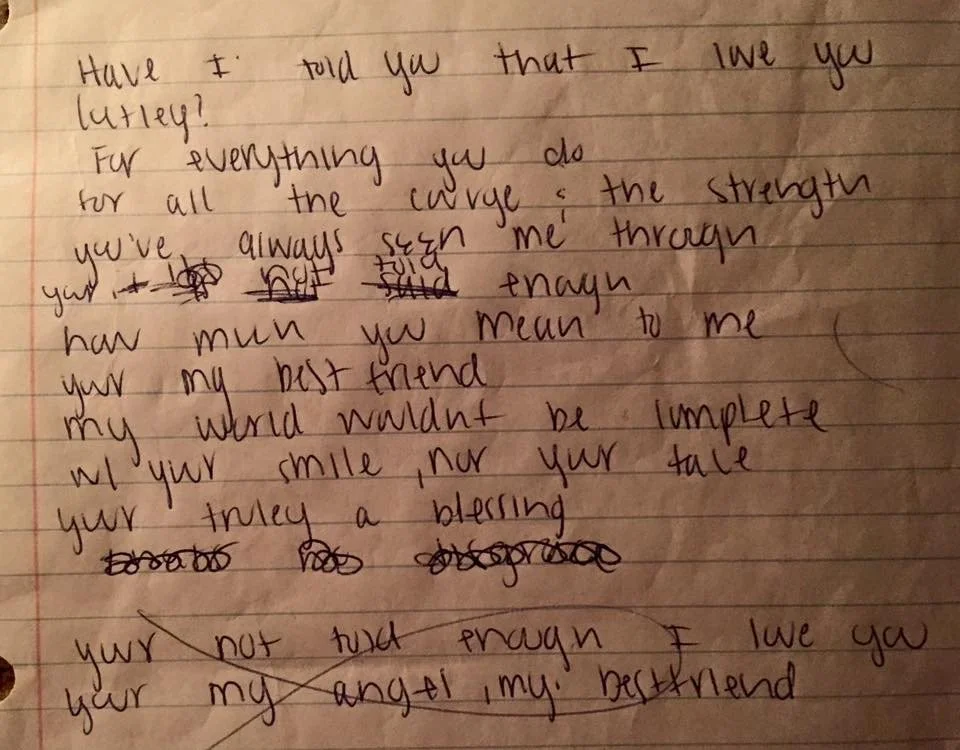 Have I told you that I love you
latley?
For everything you do
for all the courage & the strength
you've always seen me through
your not told enough
how much you mean to me
your my best friend
my world wouldnt be complete
w/ your smile, nor your face
your truley a blessing
your not told enough I love you
your my angel, my bestfriend